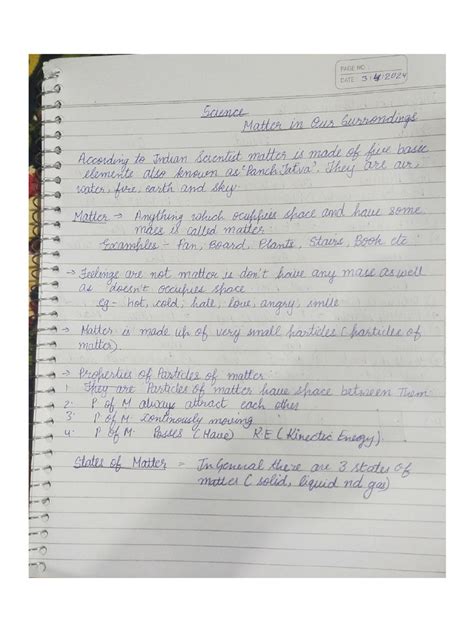 PAGE NO.:
DATE: 3/4/2024
Science
Matter in Our Surrondings
According to Indian Scientist matter is made of five basic
elements also known as "Panch Tatva". They are air,
water, fire, earth and sky.
Matter → Anything which ocuppies space and have some
mass is called matter.
Examples - Fan, Board, Plants, Stairs, Book etc
→ Feelings are not matter is don't have any mass as well
as doesn't occupies space
eg- hot, cold, hate, love, angry, smile
→ Matter is made up of very small particles (particles of
matter).
→ Properties of Particles of matter:
1. They are Particles of matter have space between them.
2. P of M always attract each other
3. P of M continously moving
4. P of M Posses (Have) K.E (Kinectic Energy).
States of Matter - In General there are 3 states of
matter (solid, liquid nd gas)